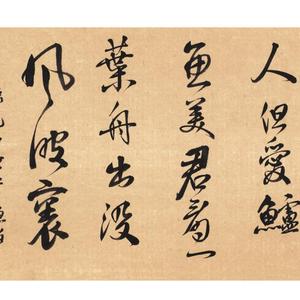 人但愛鱸
魚美君看一
葉舟出没
風波裏